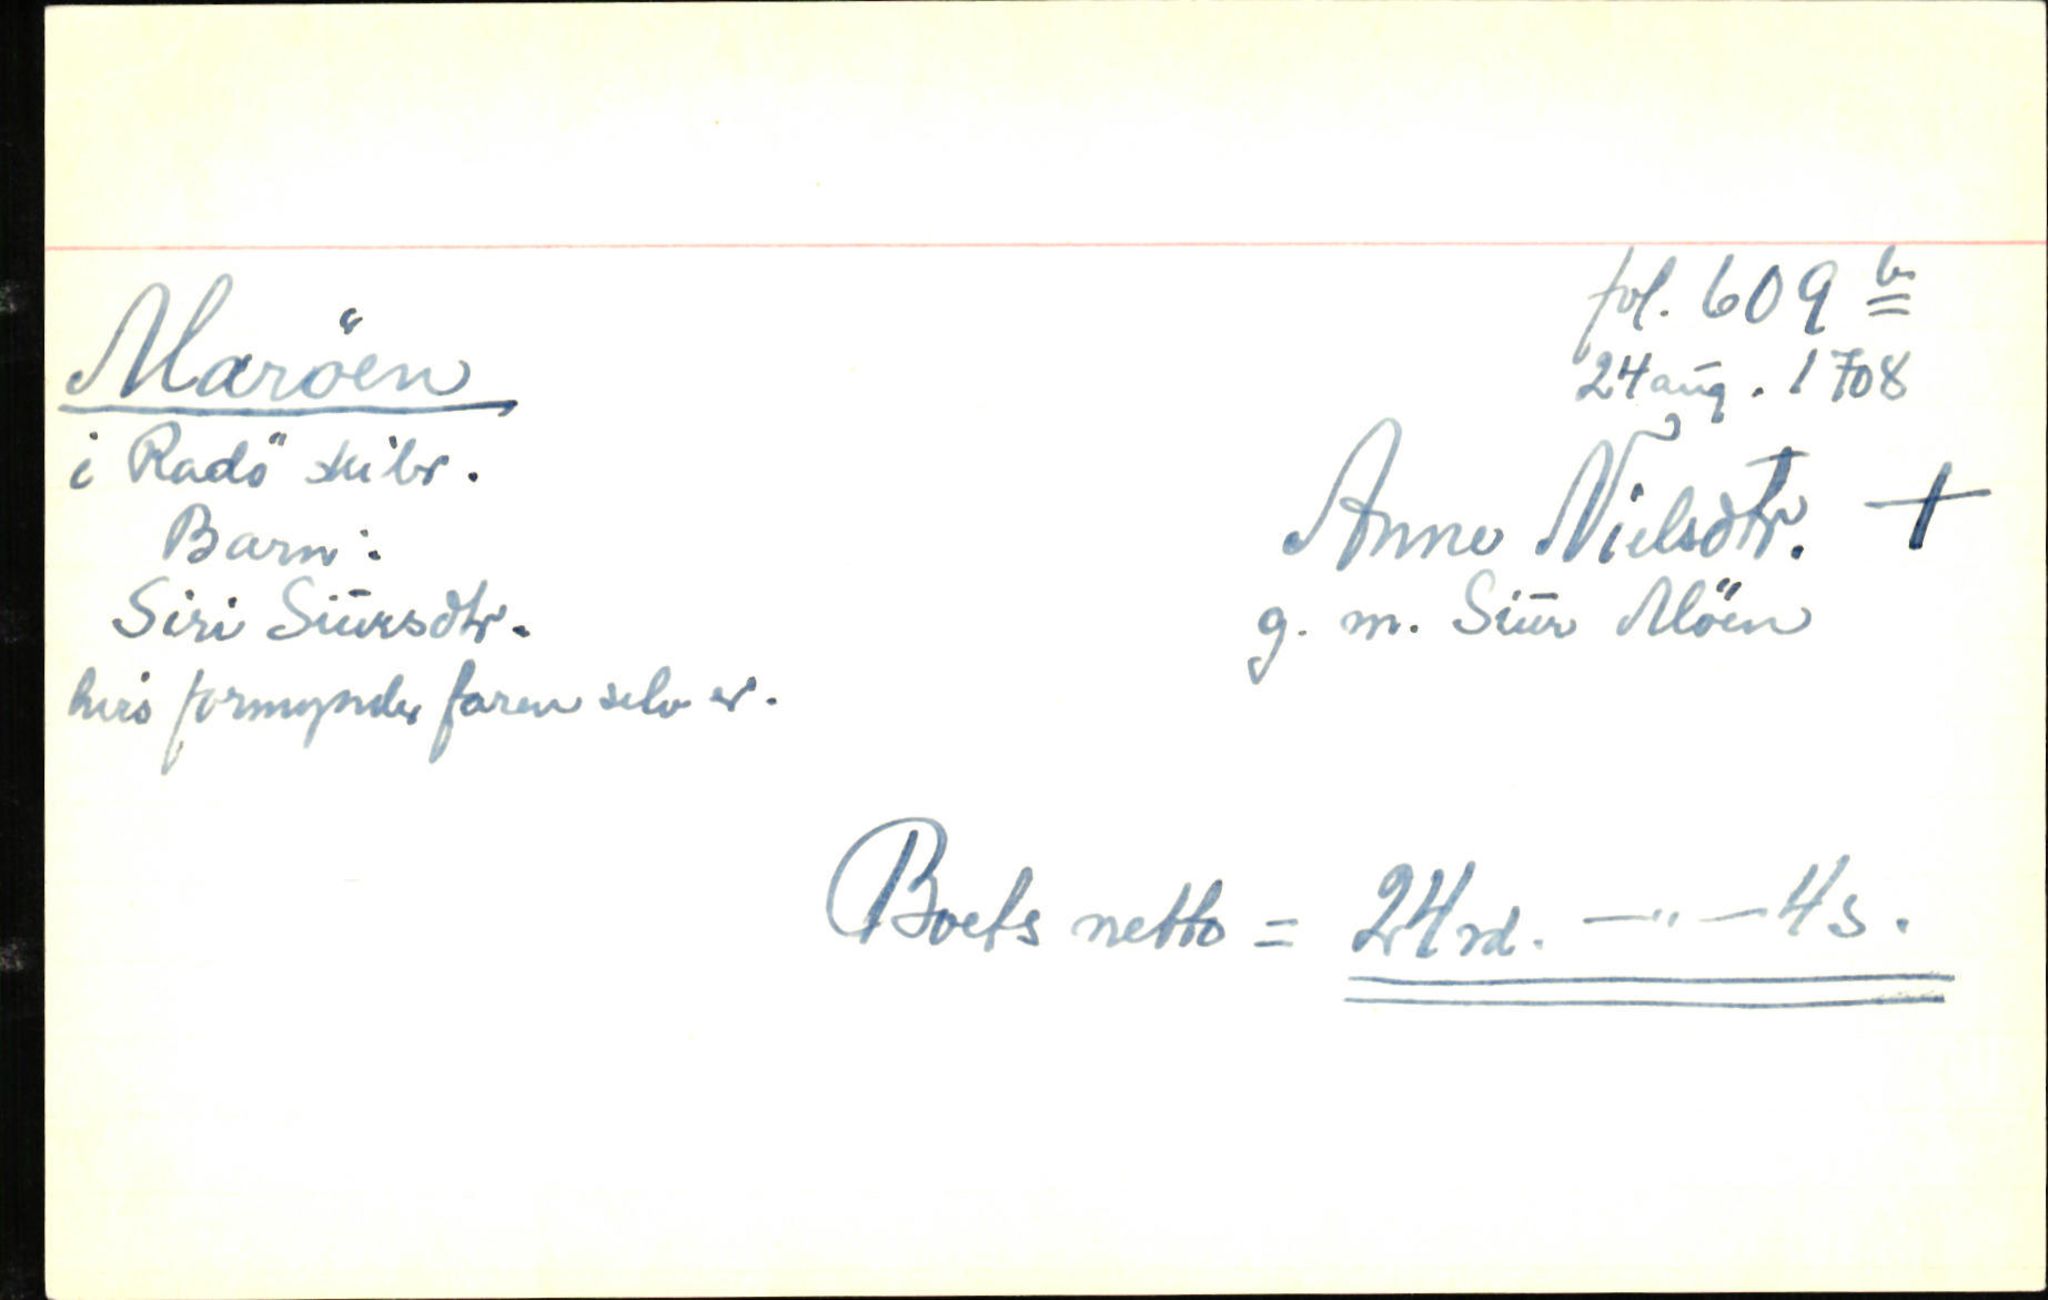 fol. 609 b
Maröen
24 aug. 1708
i Radö skibr.
Anne Nielsdtr. +
Barn:
Siri Siursdtr.
g. m. Siur Möen
hvis formynder faren selv er.
Boets netto = 24 rd. — " — 4 s.